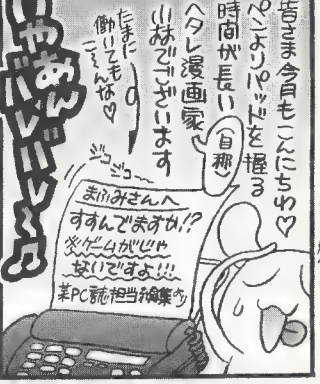 皆さま今月もこんにちわ♡
ペンよりパッドを握る
時間が長い
ヘタレ漫画家
でございます
(旦那)
たまに
働いても
こ〜んな♡
いやあん
バレバレ〜♪
ジコジコ〜
まふみさんへ
すすんでますか!?
※ゲームがじゃ
ないですよ!!!
某PC誌担当編集より